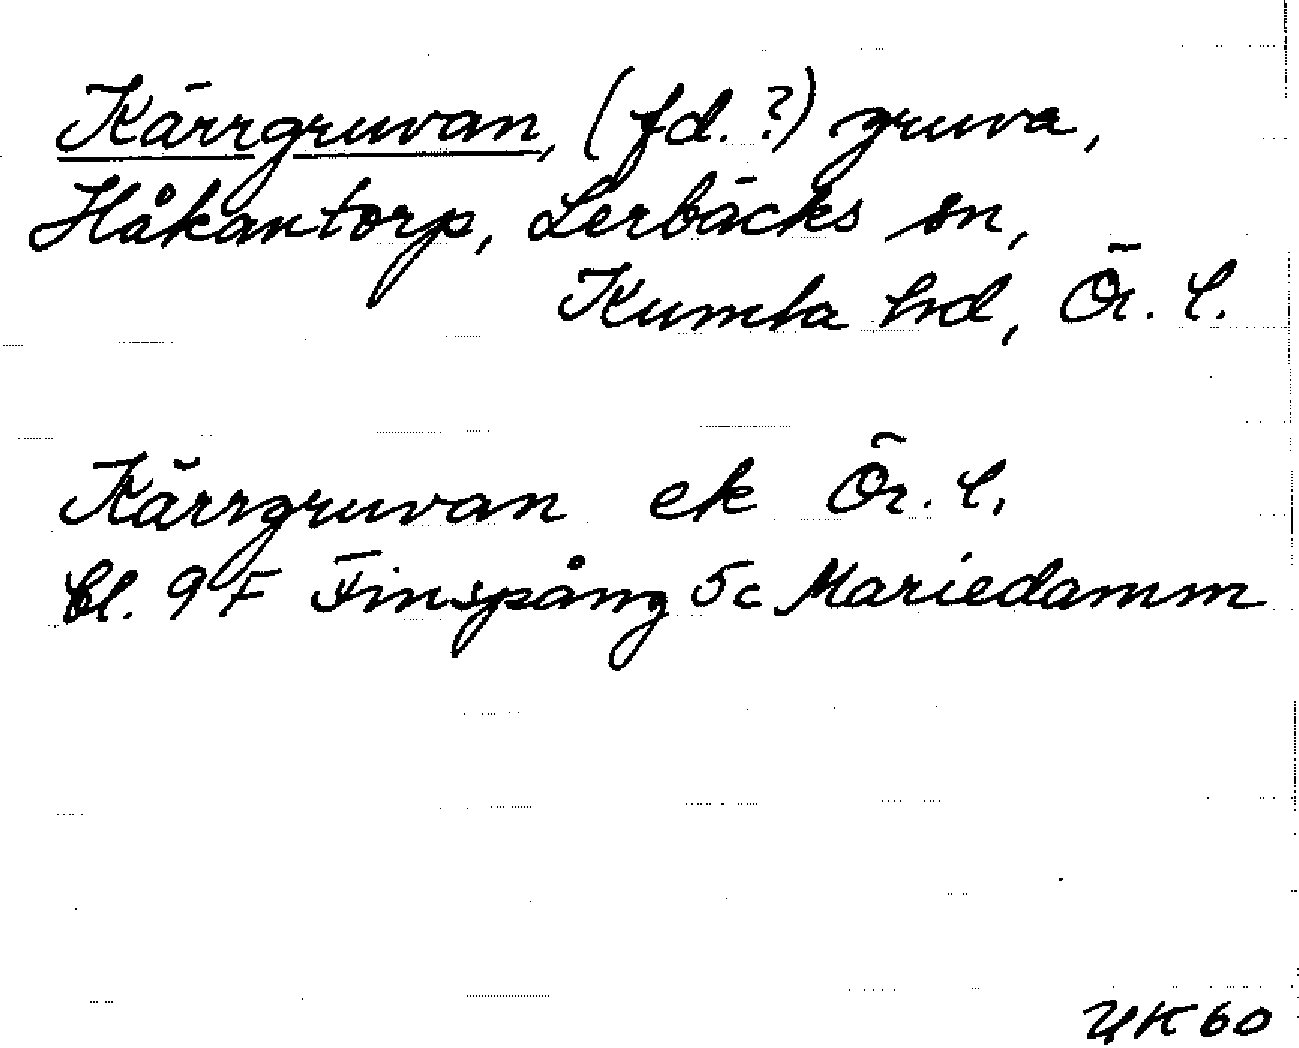 Kärrgruvan, (fd. ?) gruva,
Håkantorp, Lerbäcks sn,
Kumla hd, Ör. l.
Kärrgruvan ek Ör. l.
bl. 9F Finspång 5c Mariedamm
YK 60